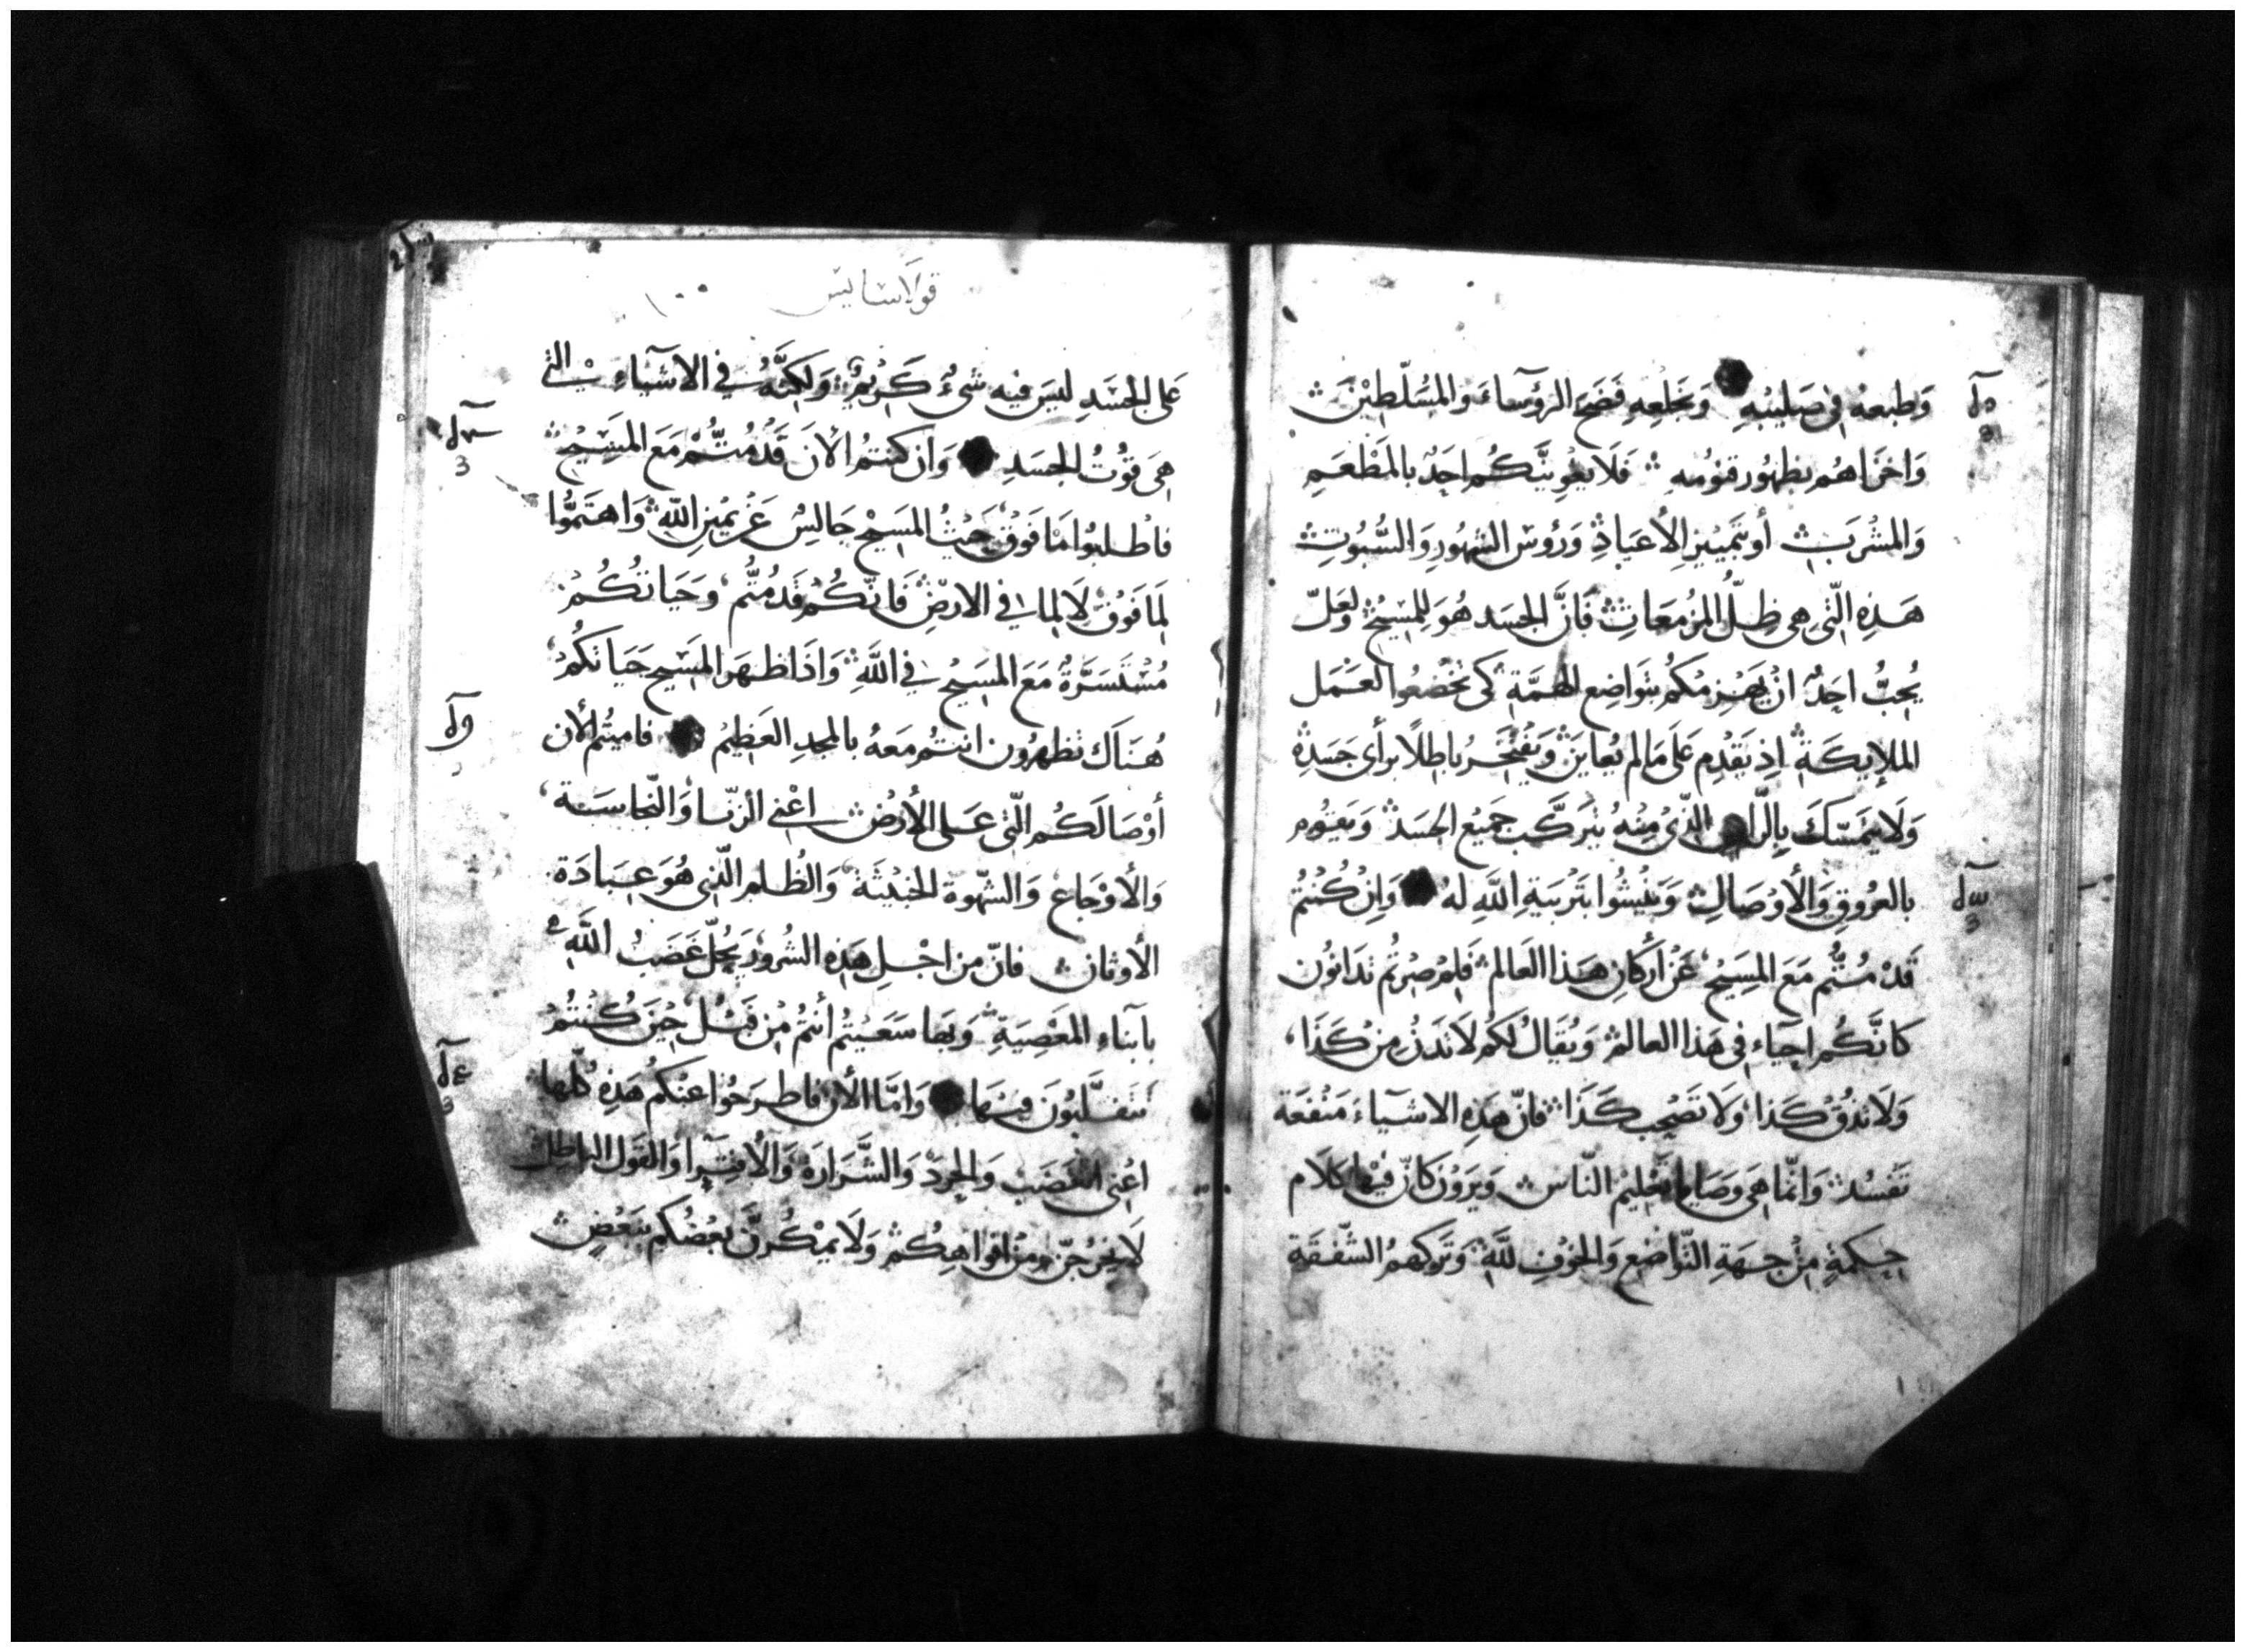 وَطبعهُ في صَليبُهِ وَبخَلعِهِ فَضَحَ الرؤسآءَ والمُسَلّطِيْنَ
وَاخزَاهُم بظهُور قنوْمُهِ فَلَا يغُوِيَنَّكُم احَدٌ بالمَطْعَمِ
وَالمَشْرَبِ أو بتَمييْزِ الأعيَادِ وَرؤس الشهُورِ وَالسُّبُوتِ
هَذِهِ الّتي هي ظِلُّ المُزمعَاتِ فَانَّ الجسَد هُوَ للِمسِيْحِ ولعَلّ
يُحِبُّ احَدٌ انْ يَهْزِمكُم بتوَاضِعِ الهمَّةِ كي تخضعُوا لعَمَل
الملايكَةِ اذِ يَقْدِم عَلَى مَالم يُعايَنْ وَيَفْتَخرُ باطِلًا برأى جَسَدِهْ
وَلَا يتمَسّكَ بِالرّاسِ الذّيْ مِنْهُ يتَركَّب جَميْع الجسَد وَيقوُم
بالعُروقِ وَالأوْصَالِ وَينْشُوا بتَرْبيَةِ اللَّهِ لهُ وَاِنْ كُنتُم
قَدْ مُتُّم مَعَ المسِيْح عَنْ أركَانِ هَذا العَالم فَلِم صِرتُم تدَانوُن
كانَّكُم احيَاء في هَذا العالم وَيُقالُ لكُم لَا تَدنُ مِنْ كَذَا
وَلَا تَذُقْ كَذا وَلَا تَصْحب كَذَا فانّ هَذِهِ الاشيَآءَ مَنْفعَة
تَفسُد وَانمّا هِيَ وَصَايا وَتعْليْم النّاس وَيَرَوْنَ كَانّ فيْها كلَام
حِكمةٍ مِنْ جهَةِ التّواضع وَالخوْفِ للَّهِ وَتَركِهمُ الشّفقَة
قولاسايس ١٠٠
عَلى الجسَدِ ليسَ فيه شئٌ كَريْمٌ وَلكِنَّهُ في الاشيَاءِ التي
هيَ قوْتُ الجسَدِ وَان كنتمُ الأنَ قَدْ مُتُّمْ مَعَ المسِيْح
فاطلبُوا مَا فَوقْ حَيْثُ المسيْح جَالِسْ عَنْ يميْنِ اللَّهْ وَاهتَمُّوا
لِمَا فَوْق لَا لمِا في الارضْ فَانّكُم قَد مُتُّم وَحَيَاتُكُمْ
مُسْتَسَرَّةٌ مَعَ المسِيْح في اللَّهِ وَاذَا ظهَر المسيح حيَاتكُم
هُنَاك تظهرُون انتُم مَعهُ بالمجدِ العَظِيْم فاميتُم الأن
أوْصَالَكُم التّي عَلى الأرْض اعْني الزّنا وَالنّجاسَة
وَالأوْجَاع وَالشّهوة الخبيْثَة وَالظُلم الّذي هُوَ عِبَادَة
الأوثان فانّ من اجْلِ هَذِه الشُرور يَحُلّ غَضَبُ اللَّهِ
بابنَاءِ المعْصِيَةِ وَبهَا سَعَيْتُم أنتُمْ مِنْ قَبْلُ حِيْنَ كُنْتُمْ
تتَقلَّبُونَ فيْهَا وَامَّا الأن فاطرَحُوا عنْكُم هَذِهِ كُلّها
اعْني الغضَب وَالحِرَدْ وَالشَّرَارَة وَالأفترَا وَالقوْل الباطل
لَا يخْرُجَنّ مِنْ افوَاهِكُم وَلَا يمْكُرنَّ بعْضُكم ببَعْضٍ